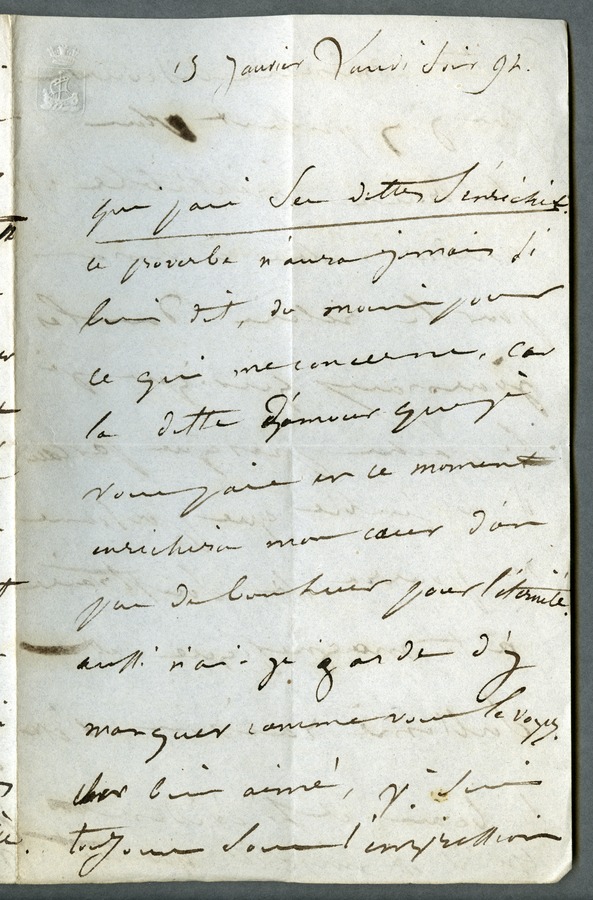 15 Janvier Vendredi Soir 92.
qui paie ses dettes s'enrichit.
ce proverbe n'aura jamais si
bien dit, du moins pour
ce qui me concerne, car
la dette d'amour que je
vous paie en ce moment
enrichira mon cœur d'un
peu de bonheur pour l'éternité.
aussi n'ai-je garde d'y
manquer comme vous le voyez
cher bien aimé, j'y suis
toujours sous l'impression